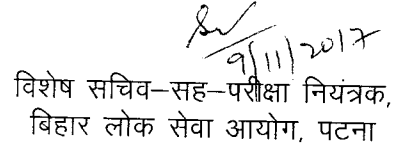 9/11/2017
विशेष सचिव–सह–परीक्षा नियंत्रक,
बिहार लोक सेवा आयोग, पटना